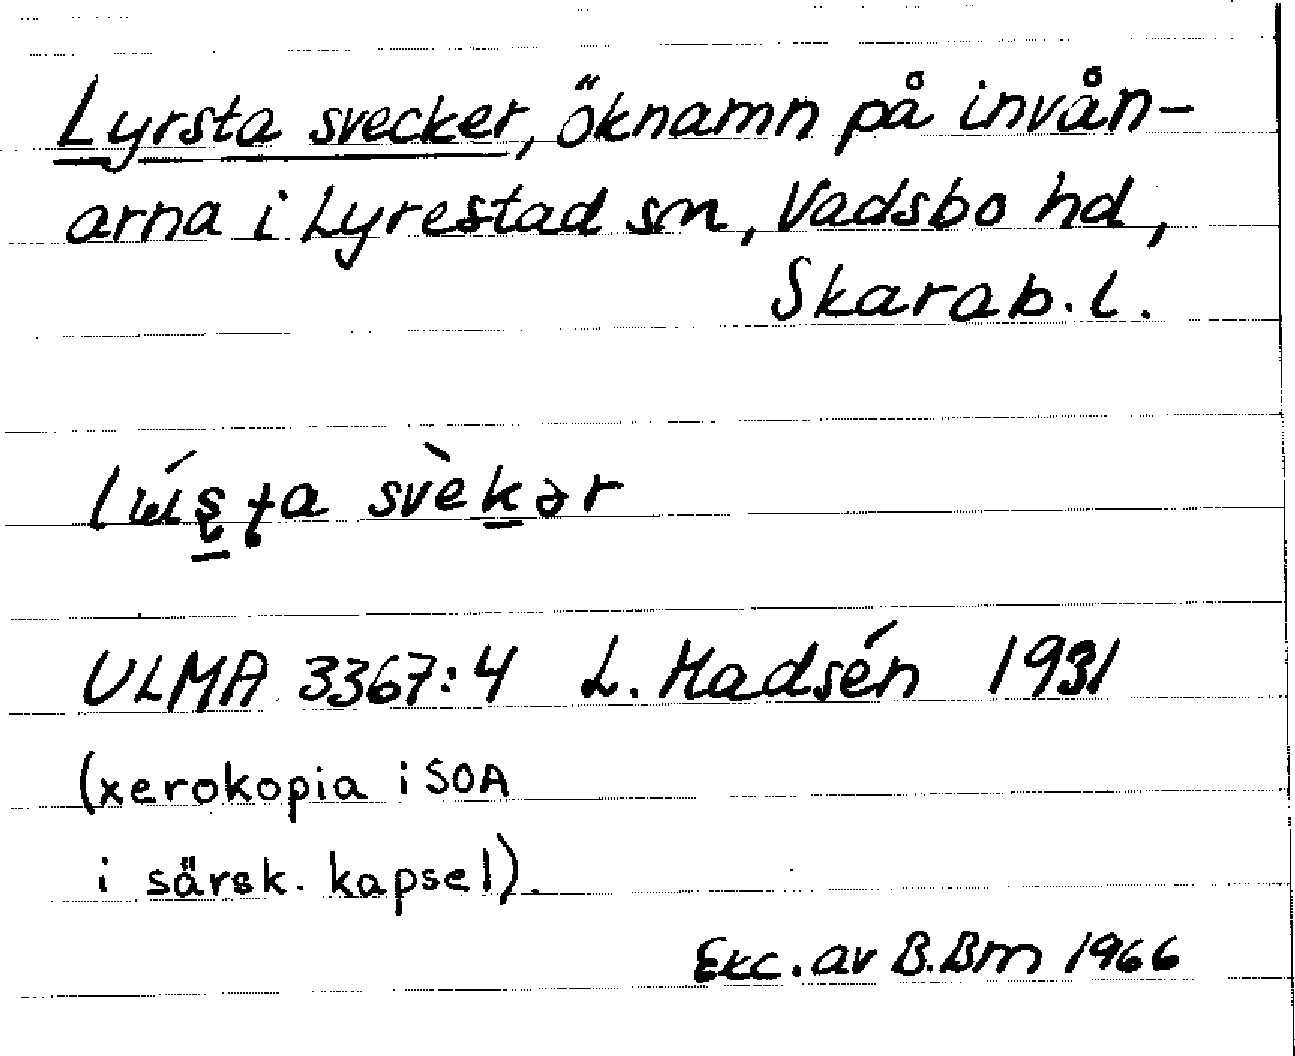 Lyrsta svecker, öknamn på invån-
arna i Lyrestad sn, Vadsbo hd,
Skarab. l.
svèkər
ULMA 3367:4 L. Hadsén 1931
(xerokopia i SOA
i särsk. kapsel).
Exc. av B.Bm 1966